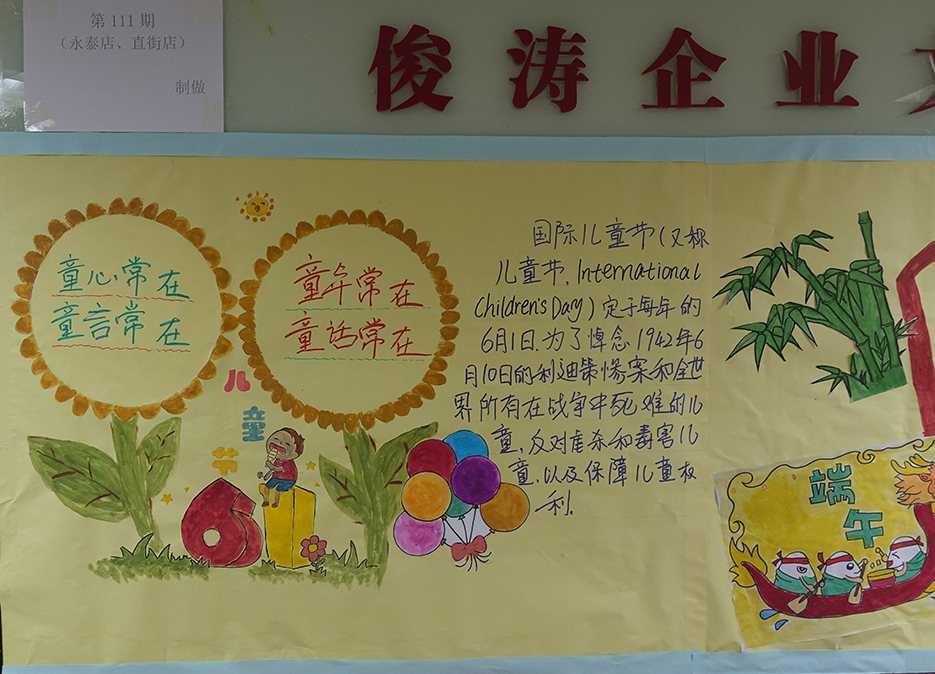 第 111 期
（永泰店、直街店）
制做
俊涛企业
童心常在
童言常在
童年常在
童话常在
儿
童
节
61
国际儿童节（又称
儿童节，International
Children's Day）定于每年的
6月1日.为了悼念1942年6
月10日的利迪策惨案和全世
界所有在战争中死难的儿
童，反对虐杀和毒害儿
童，以及保障儿童权
利.
端
午